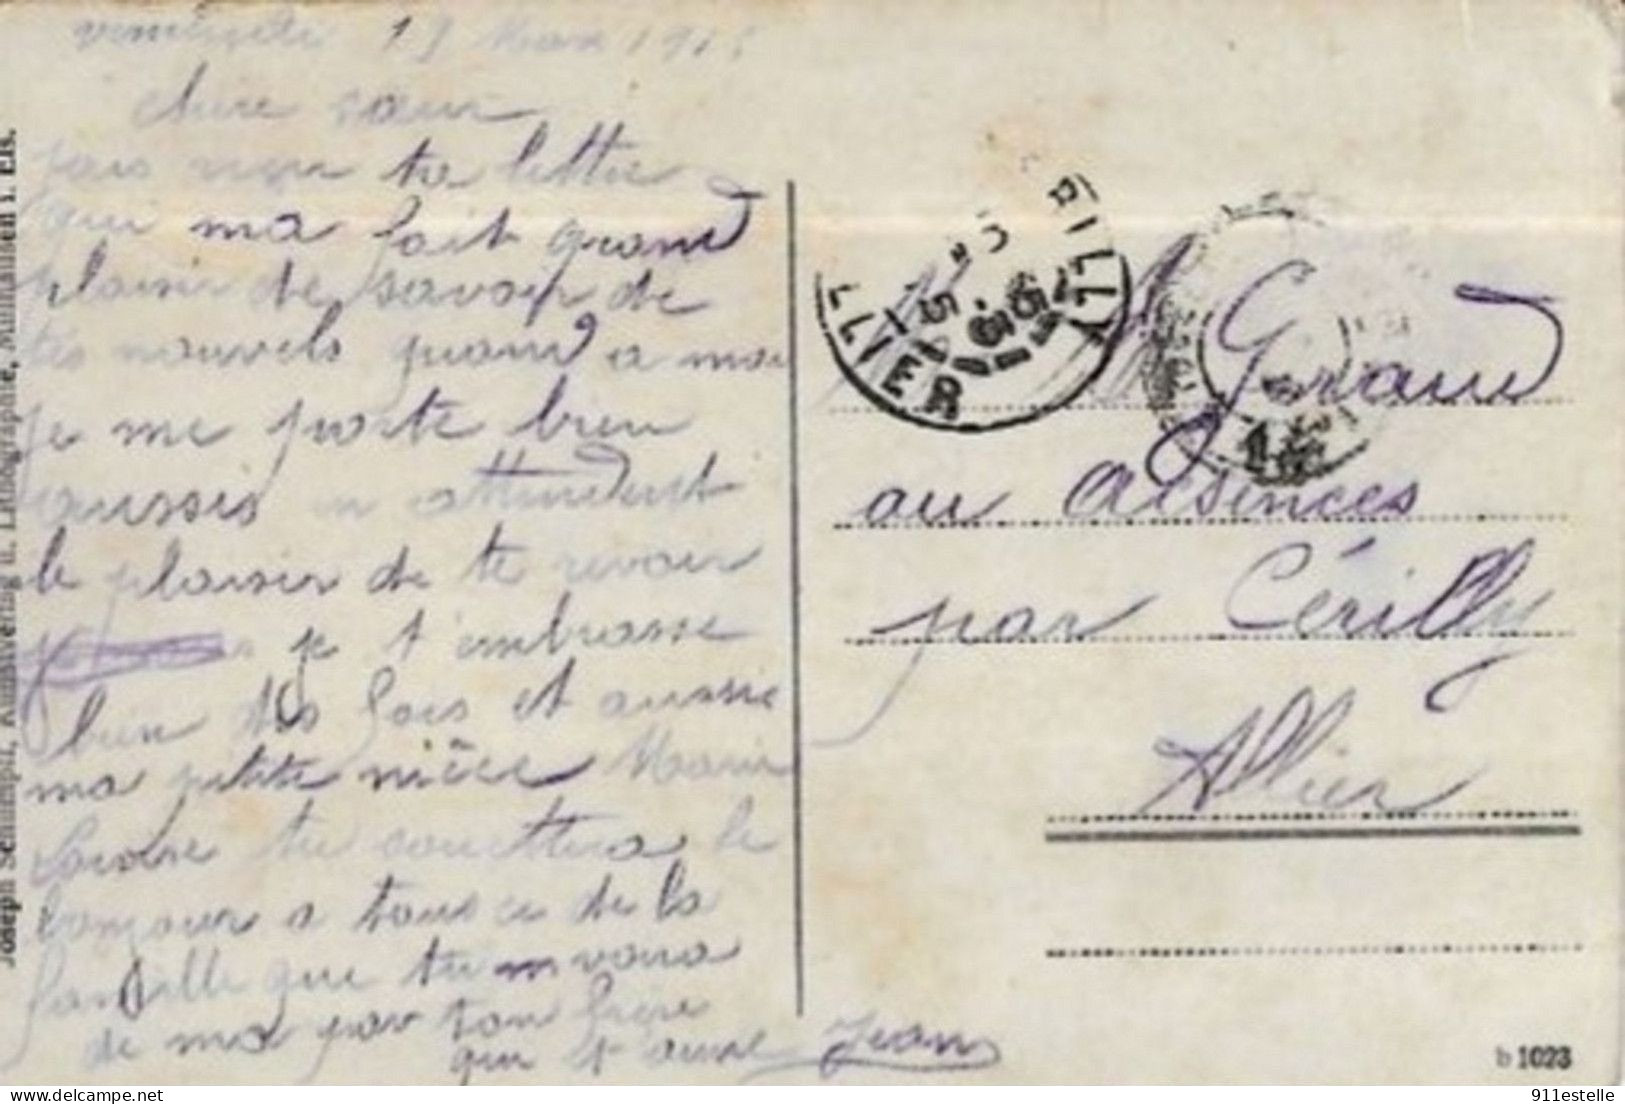 19 Mars 191
chère sœur
jais reçu ta lettre
qui ma fait grand
plaisir de savoir de
tes nouvels quand a moi
je me porte bien
aussis en attendent
le plaisir de te revoir
je t'embrasse
bien des fois et aussie
ma petite nièce Marie
Louise tu souettera le
bonjour a tous ce de la
famille que tu voira
de ma par ton frère
qui et aime Jean
Joseph Schlimpff, Kunstverlag u. Lithographie, Mülhausen i. Els.
CÉRILLY
ALLIER
Grand
au Arsences
par Cérilly
Allier
b 1023
911estelle